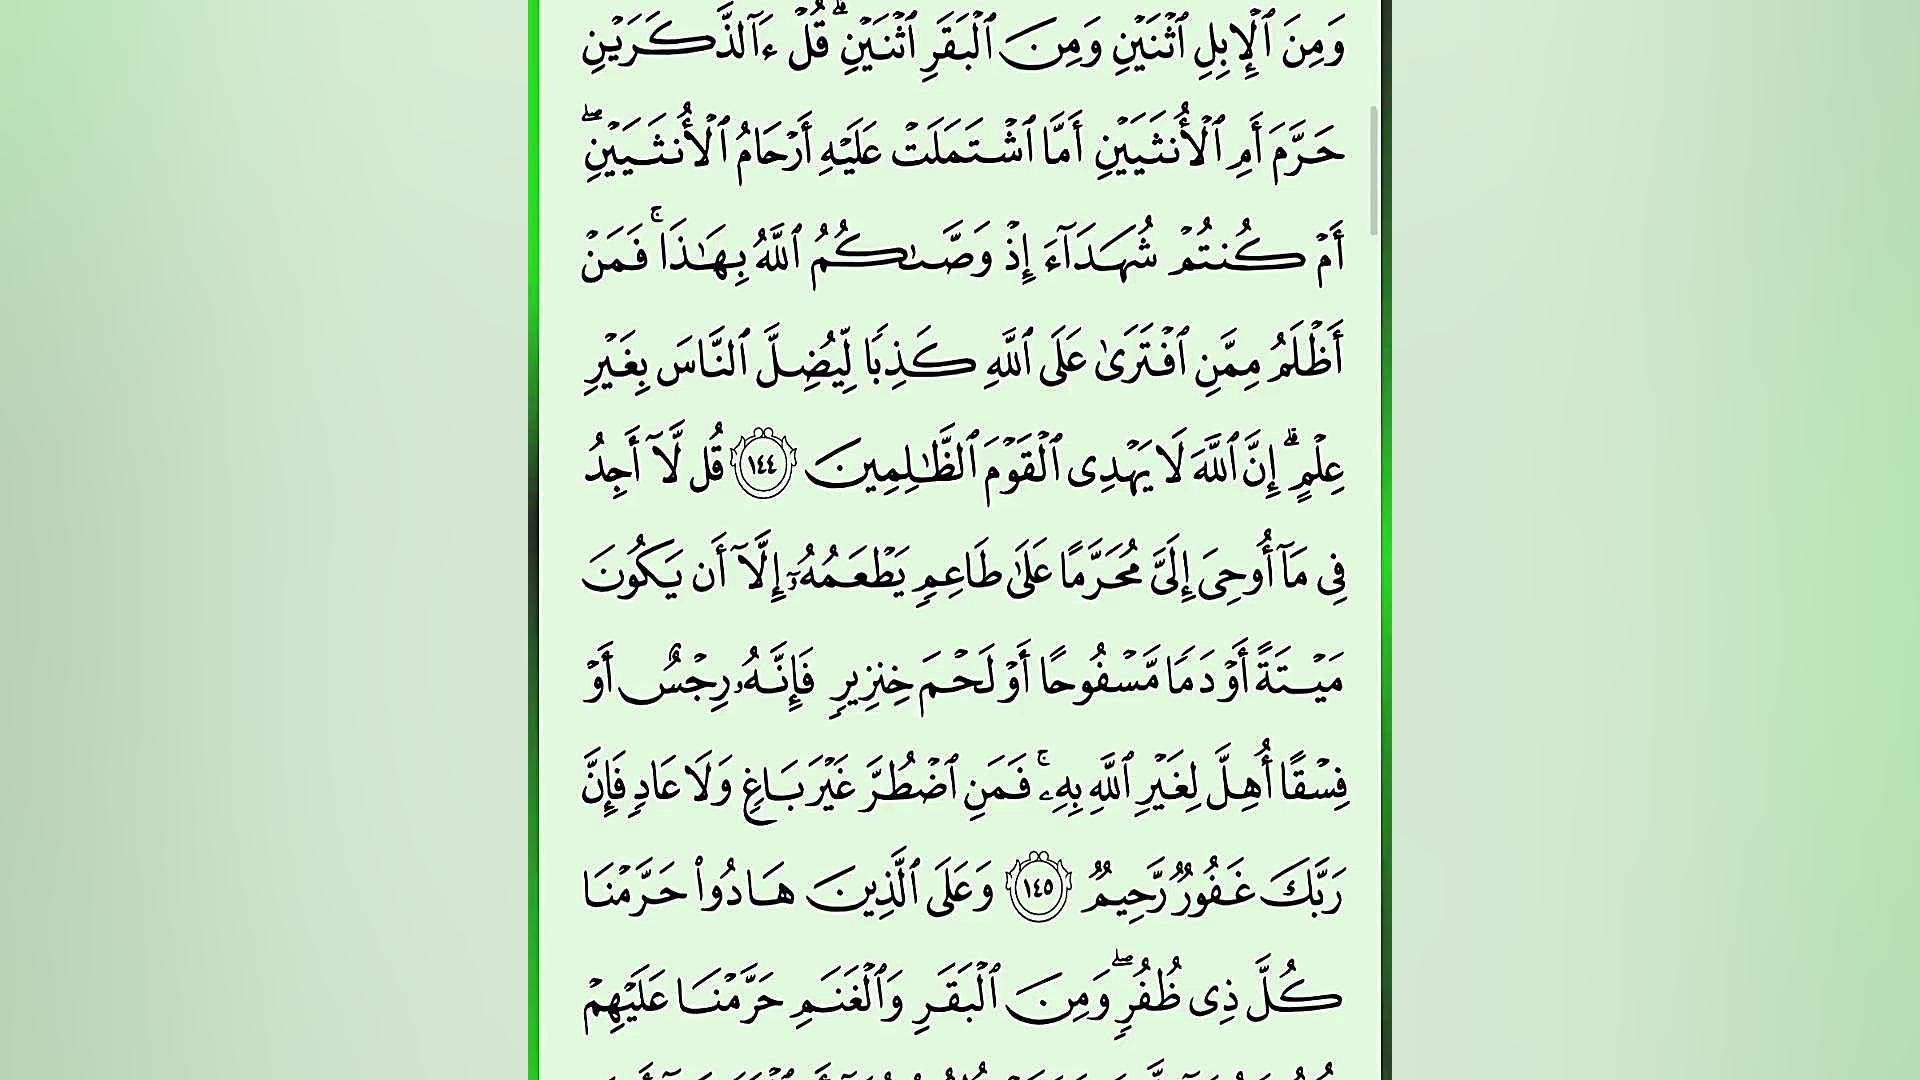 وَمِنَ ٱلْإِبِلِ ٱثْنَيْنِ وَمِنَ ٱلْبَقَرِ ٱثْنَيْنِ ۗ قُلْ ءَآلذَّكَرَيْنِ
حَرَّمَ أَمِ ٱلْأُنثَيَيْنِ أَمَّا ٱشْتَمَلَتْ عَلَيْهِ أَرْحَامُ ٱلْأُنثَيَيْنِ ۖ
أَمْ كُنتُمْ شُهَدَآءَ إِذْ وَصَّىٰكُمُ ٱللَّهُ بِهَـٰذَا ۚ فَمَنْ
أَظْلَمُ مِمَّنِ ٱفْتَرَىٰ عَلَى ٱللَّهِ كَذِبًا لِّيُضِلَّ ٱلنَّاسَ بِغَيْرِ
عِلْمٍ ۗ إِنَّ ٱللَّهَ لَا يَهْدِى ٱلْقَوْمَ ٱلظَّـٰلِمِينَ ١٤٤ قُل لَّآ أَجِدُ
فِى مَآ أُوحِىَ إِلَىَّ مُحَرَّمًا عَلَىٰ طَاعِمٍ يَطْعَمُهُۥٓ إِلَّآ أَن يَكُونَ
مَيْتَةً أَوْ دَمًا مَّسْفُوحًا أَوْ لَحْمَ خِنزِيرٍ فَإِنَّهُۥ رِجْسٌ أَوْ
فِسْقًا أُهِلَّ لِغَيْرِ ٱللَّهِ بِهِۦ ۚ فَمَنِ ٱضْطُرَّ غَيْرَ بَاغٍ وَلَا عَادٍ فَإِنَّ
رَبَّكَ غَفُورٌ رَّحِيمٌ ١٤٥ وَعَلَى ٱلَّذِينَ هَادُوا۟ حَرَّمْنَا
كُلَّ ذِى ظُفُرٍ ۖ وَمِنَ ٱلْبَقَرِ وَٱلْغَنَمِ حَرَّمْنَا عَلَيْهِمْ